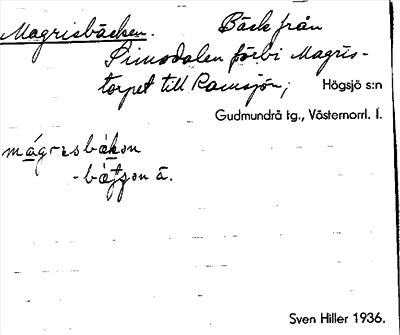 Magrisbäcken. Bäck från
Simsdalen förbi Magris-
torpet till Ramsjön; Högsjö s:n
Gudmundrå tg., Västernorrl. l.
mágrisbäkən
Sven Hiller 1936.